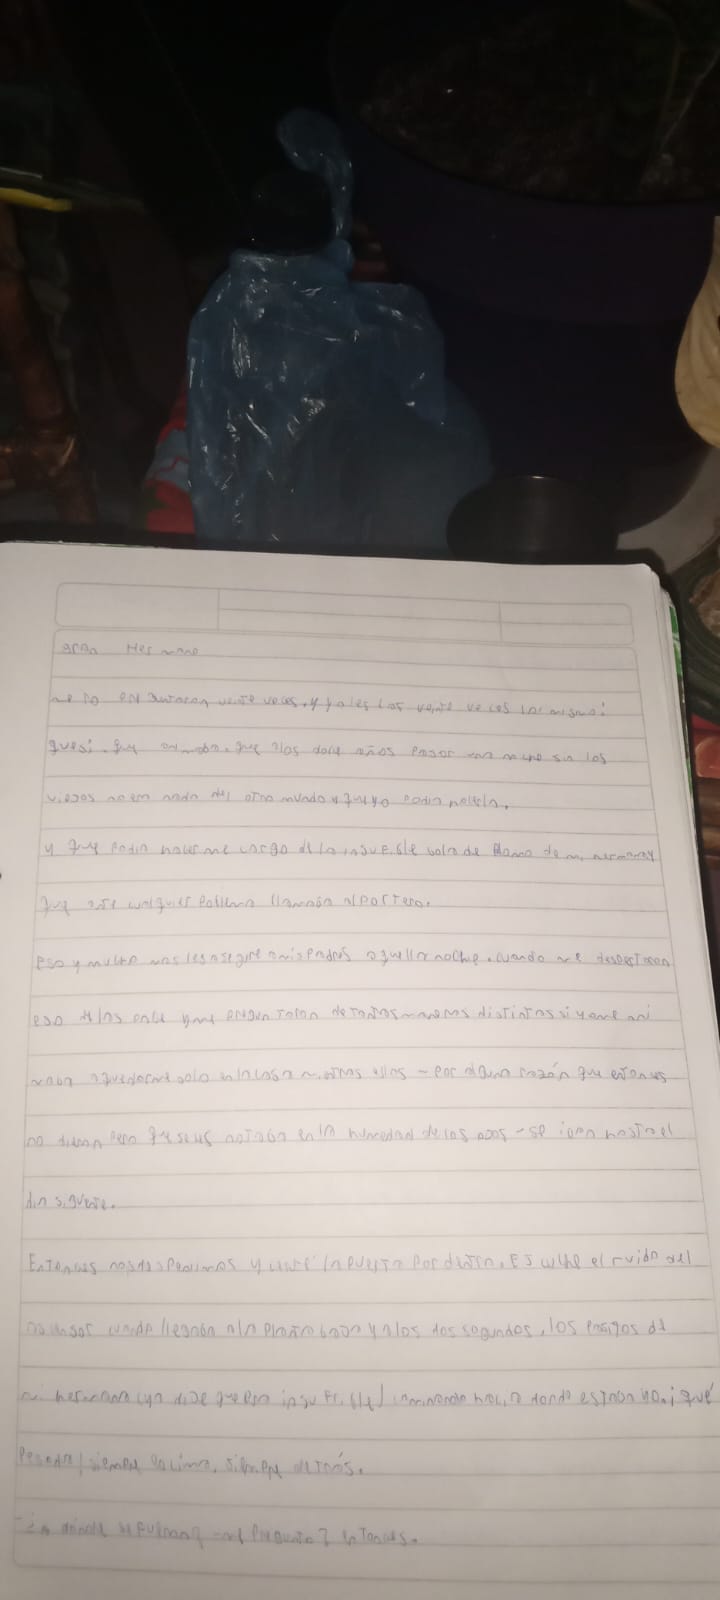 gran Hermano
me lo preguntaron veinte veces, y yo les las veinte veces lo mismo:
que si, que, que a los doce años pasar una noche sin los
viejos no era nada del otro mundo y que yo podia
y que podia hacerme cargo de la insufrible bola de plomo de mi hermana y
que ante cualquier problema llamaba al portero.
eso y mucho mas les asegure a mis padres aquella noche, cuando me despertaron
eso de las once y me preguntaron de tantas maneras distintas si yo me ani
maba a quedarme solo en la casa mientras ellos - por alguna razón que entonces
no dieron pero que se les notaba en la humedad de los ojos - se iban hasta el
dia siguiente.
Entonces nos despedimos y cerré la puerta por dentro. Escuche el ruido del
ascensor cuando llegaba a la planta baja y a los dos segundos, los pasitos de
mi hermana (ya dije que era insufrible) caminando hacia donde estaba yo. ¡qué
pesada! siempre encima, siempre detrás.
-¿a dónde se fueron? -me pregunto? entonces.